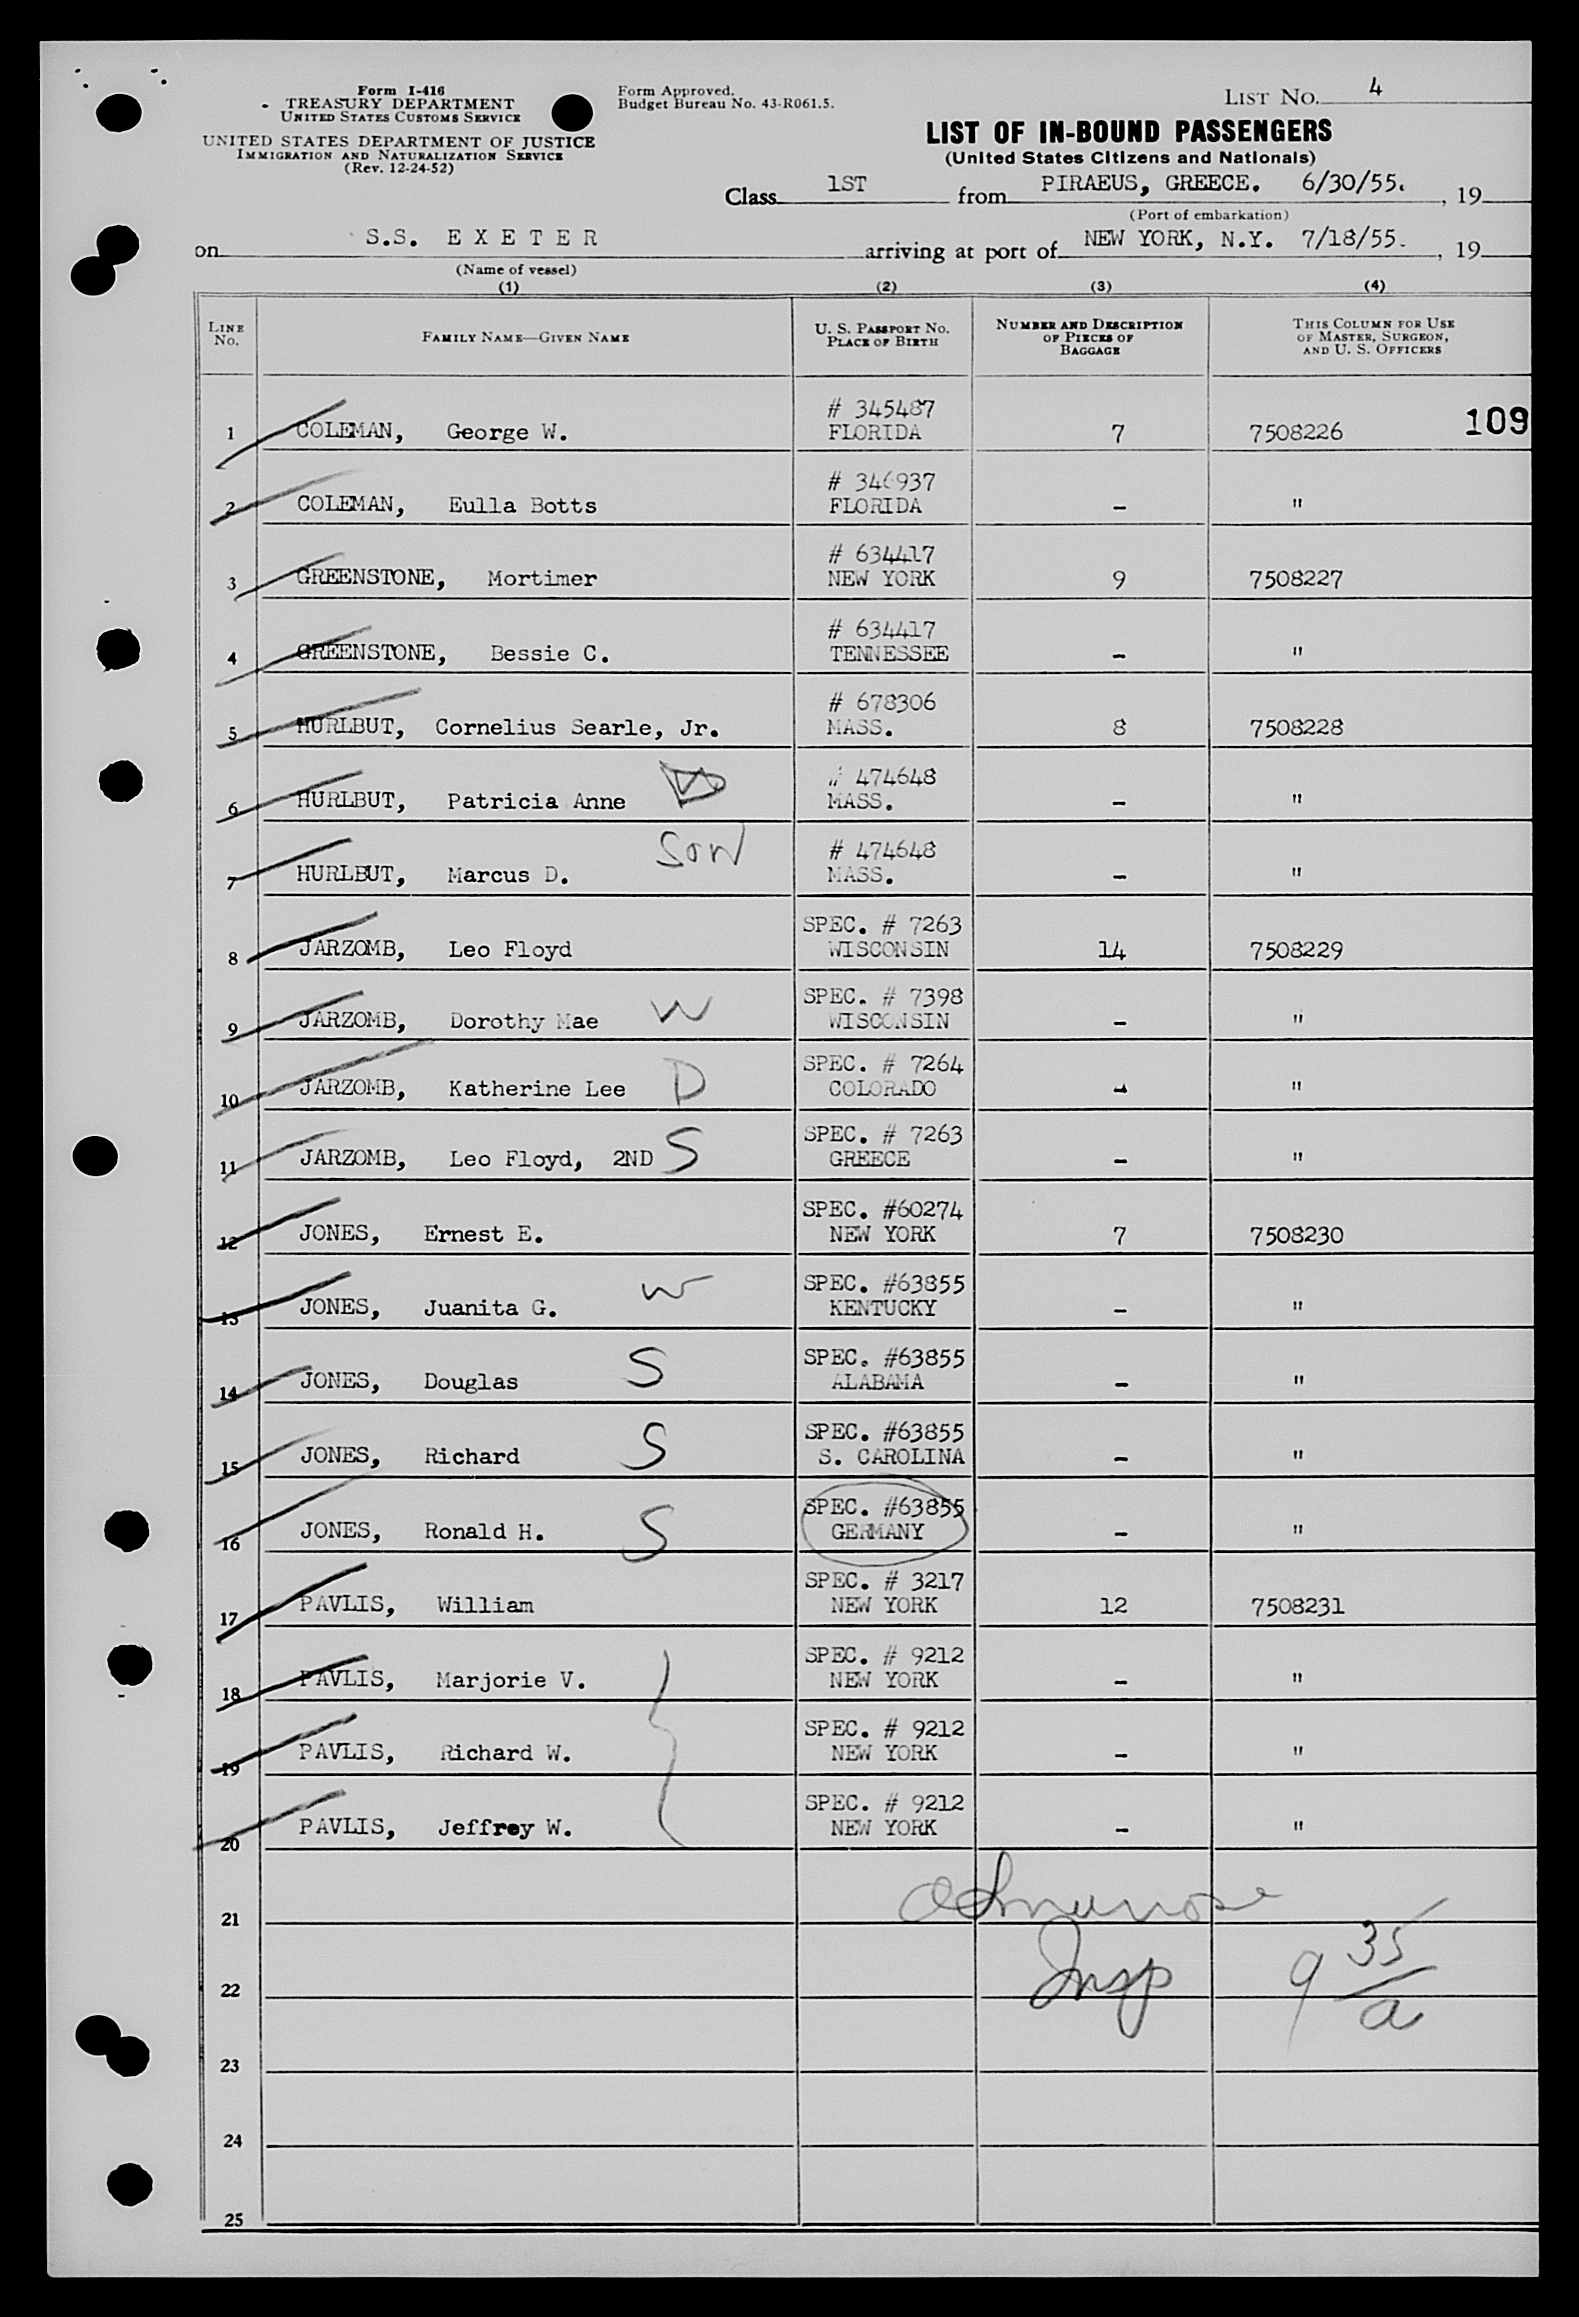 Form I-416
TREASURY DEPARTMENT
UNITED STATES CUSTOMS SERVICE
UNITED STATES DEPARTMENT OF JUSTICE
IMMIGRATION AND NATURALIZATION SERVICE
(Rev. 12-24-52)
Form Approved.
Budget Bureau No. 43-R061.5.
LIST NO. 4
LIST OF IN-BOUND PASSENGERS
(United States Citizens and Nationals)
Class 1ST from PIRAEUS, GREECE. 6/30/55. , 19
(Port of embarkation)
on S.S. EXETER arriving at port of NEW YORK, N.Y. 7/18/55. , 19
(Name of vessel)
(1) (2) (3) (4)
LINE NO. FAMILY NAME—GIVEN NAME U. S. PASSPORT NO. PLACE OF BIRTH NUMBER AND DESCRIPTION OF PIECES OF BAGGAGE THIS COLUMN FOR USE OF MASTER, SURGEON, AND U. S. OFFICERS
109
1 COLEMAN, George W. # 345487 FLORIDA 7 7508226
2 COLEMAN, Eulla Botts # 346937 FLORIDA - "
3 GREENSTONE, Mortimer # 634417 NEW YORK 9 7508227
4 GREENSTONE, Bessie C. # 634417 TENNESSEE - "
5 HURLBUT, Cornelius Searle, Jr. # 678306 MASS. 8 7508228
6 HURLBUT, Patricia Anne # 474648 MASS. - "
7 HURLBUT, Marcus D. SON # 474648 MASS. - "
8 JARZOMB, Leo Floyd SPEC. # 7263 WISCONSIN 14 7508229
9 JARZOMB, Dorothy Mae W SPEC. # 7398 WISCONSIN - "
10 JARZOMB, Katherine Lee D SPEC. # 7264 COLORADO - "
11 JARZOMB, Leo Floyd, 2ND S SPEC. # 7263 GREECE - "
12 JONES, Ernest E. SPEC. #60274 NEW YORK 7 7508230
13 JONES, Juanita G. W SPEC. #63855 KENTUCKY - "
14 JONES, Douglas S SPEC. #63855 ALABAMA - "
15 JONES, Richard S SPEC. #63855 S. CAROLINA - "
16 JONES, Ronald H. S SPEC. #63855 GERMANY - "
17 PAVLIS, William SPEC. # 3217 NEW YORK 12 7508231
18 PAVLIS, Marjorie V. SPEC. # 9212 NEW YORK - "
19 PAVLIS, Richard W. SPEC. # 9212 NEW YORK - "
20 PAVLIS, Jeffrey W. SPEC. # 9212 NEW YORK - "
21
22 Insp 9 35/a
23
24
25